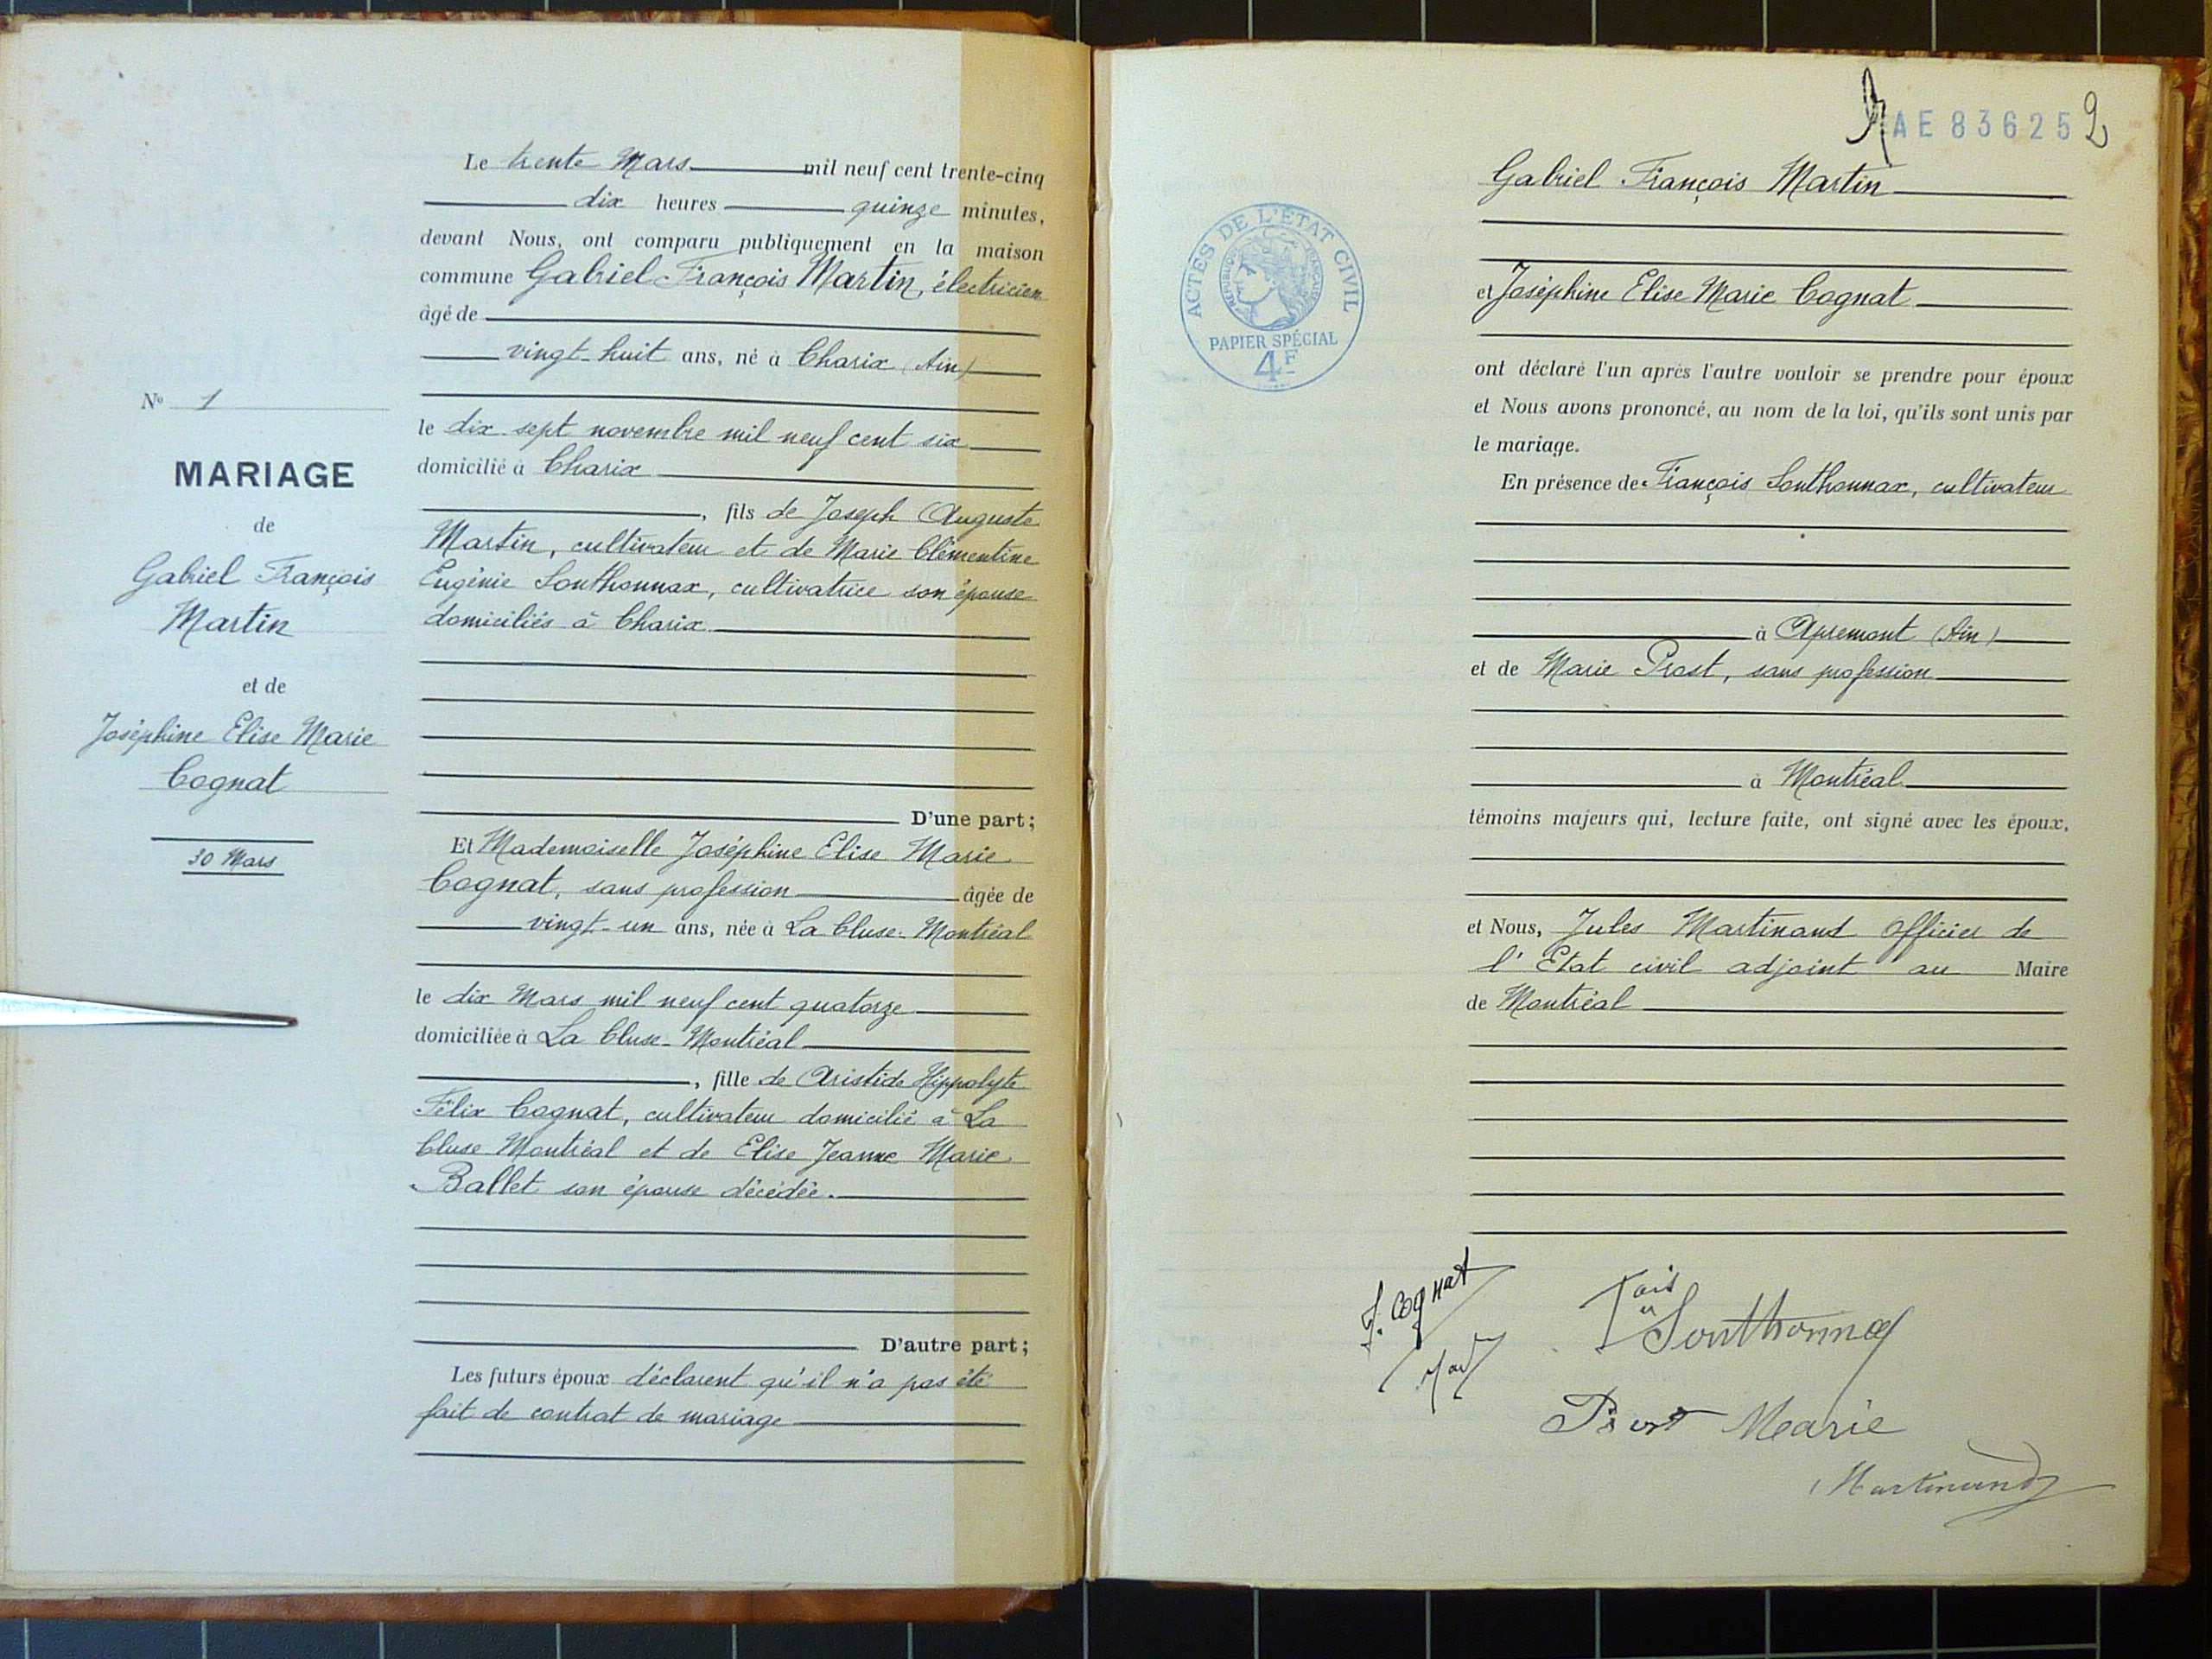 Nº 1
MARIAGE
de
Gabriel François
Martin
et de
Joséphine Elise Marie
Cognat
30 Mars
Le trente Mars mil neuf cent trente-cinq
dix heures quinze minutes,
devant Nous, ont comparu publiquement en la maison
commune Gabriel François Martin, électricien
âgé de
vingt-huit ans, né à Charix (Ain)
le dix sept novembre mil neuf cent six
domicilié à Charix
, fils de Joseph Auguste
Martin, cultivateur et de Marie Clémentine
Eugénie Sonthonnax, cultivatrice son épouse
domiciliés à Charix
D'une part;
Et Mademoiselle Joséphine Elise Marie
Cognat, sans profession âgée de
vingt-un ans, née à La Cluse-Montréal
le dix Mars mil neuf cent quatorze
domiciliée à La Cluse-Montréal
, fille de Aristide Hippolyte
Félix Cognat, cultivateur domicilié à La
Cluse Montréal et de Elise Jeanne Marie
Ballet son épouse décédée.
D'autre part;
Les futurs époux déclarent qu'il n'a pas été
fait de contrat de mariage
AE 83625 2
ACTES DE L'ÉTAT CIVIL
RÉPUBLIQUE FRANÇAISE
PAPIER SPÉCIAL
4F
Gabriel François Martin
et Joséphine Elise Marie Cognat
ont déclaré l'un après l'autre vouloir se prendre pour époux
et Nous avons prononcé, au nom de la loi, qu'ils sont unis par
le mariage.
En présence de François Sonthonnax, cultivateur
à Apremont (Ain)
et de Marie Prost, sans profession
à Montréal
témoins majeurs qui, lecture faite, ont signé avec les époux,
et Nous, Jules Martinand officier de
l'Etat civil adjoint au Maire
de Montréal
J. Cognat
Sonthonnax
Prost Marie
Martinand